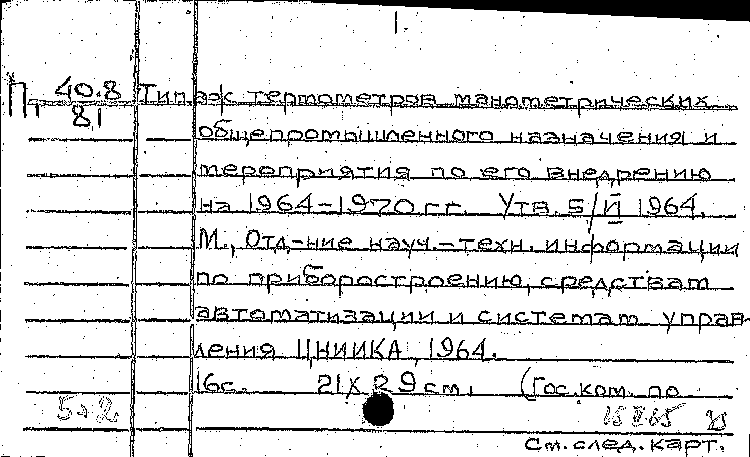 1.
П 40.8
81
Типаж термометров манометрических
общепромышленного назначения и
мероприятия по его внедрению
на 1964-1970 гг. Утв. 5/II 1964.
М., Отд-ние науч.-техн. информации
по приборостроению, средствам
автоматизации и системам управ-
ления ЦНИИКА, 1964.
16с. 21 X 29 см. (Гос. ком. по
См. след. карт.